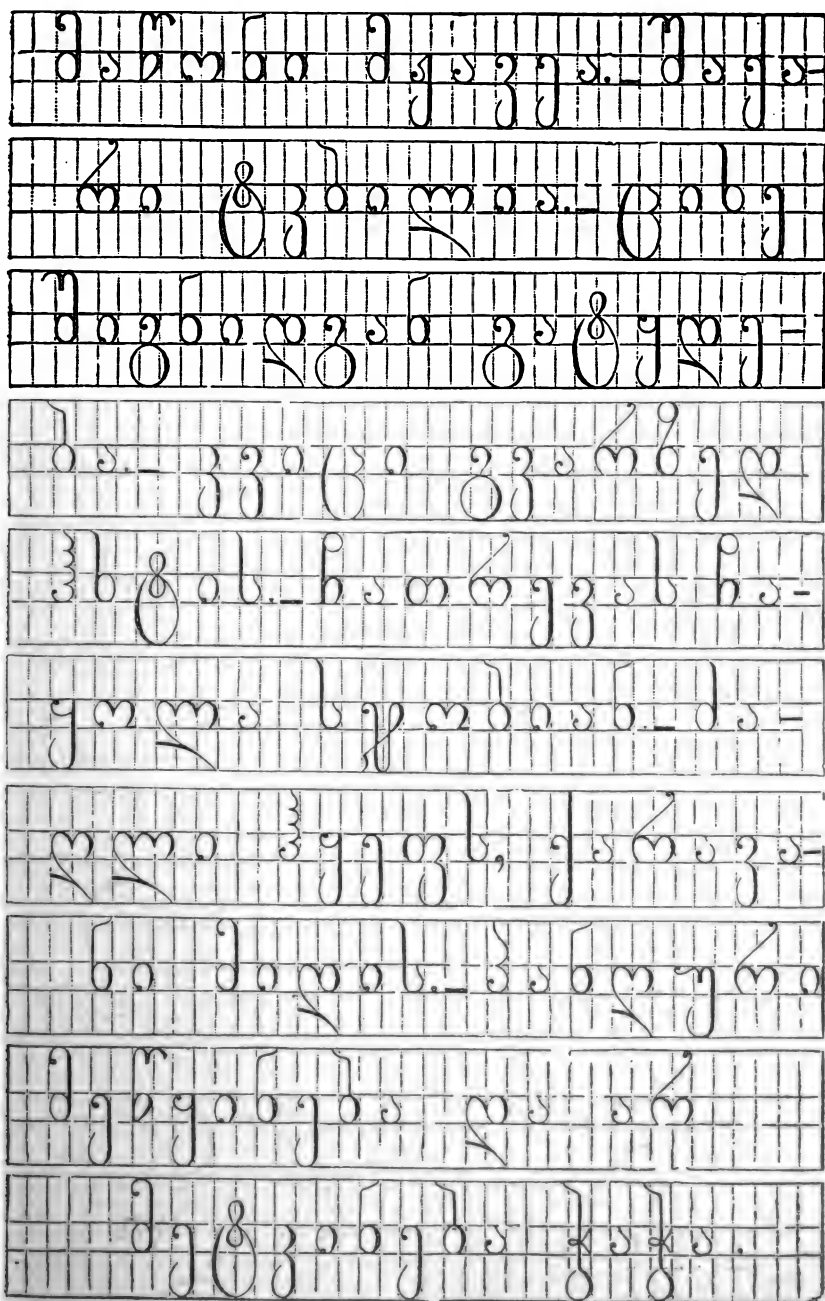 მაწონი მჟავეა.– შაქა-
რი ტკბილია.– ციხე
შიგნიდგან გატყდე-
ბა.– კვიცი გვარზედ
ჰხტის.– ჩათრევას ჩა-
ყოლა სჯობიან.– ძა-
ღლი ჰყეფს, ქარავა-
ნი მიდის.– პანღური
მეწყინება და არ
მეტკინება ჭაჭა.